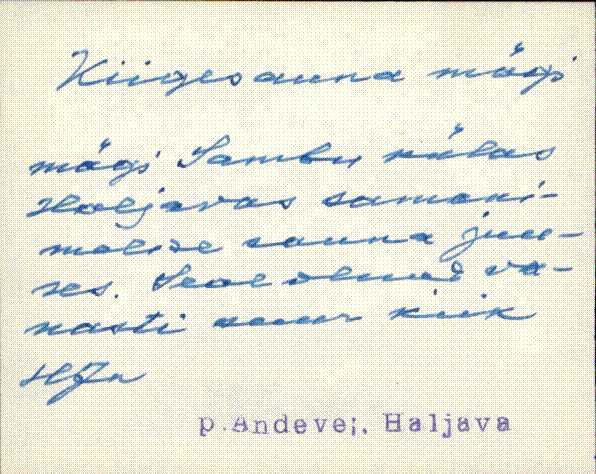 Kiigesauna mägi
mägi Sambu külas
Haljavas samani-
melise sauna juu-
res. Seal olnud va-
nasti suur kiik
HJn
p.Andevei, Haljava